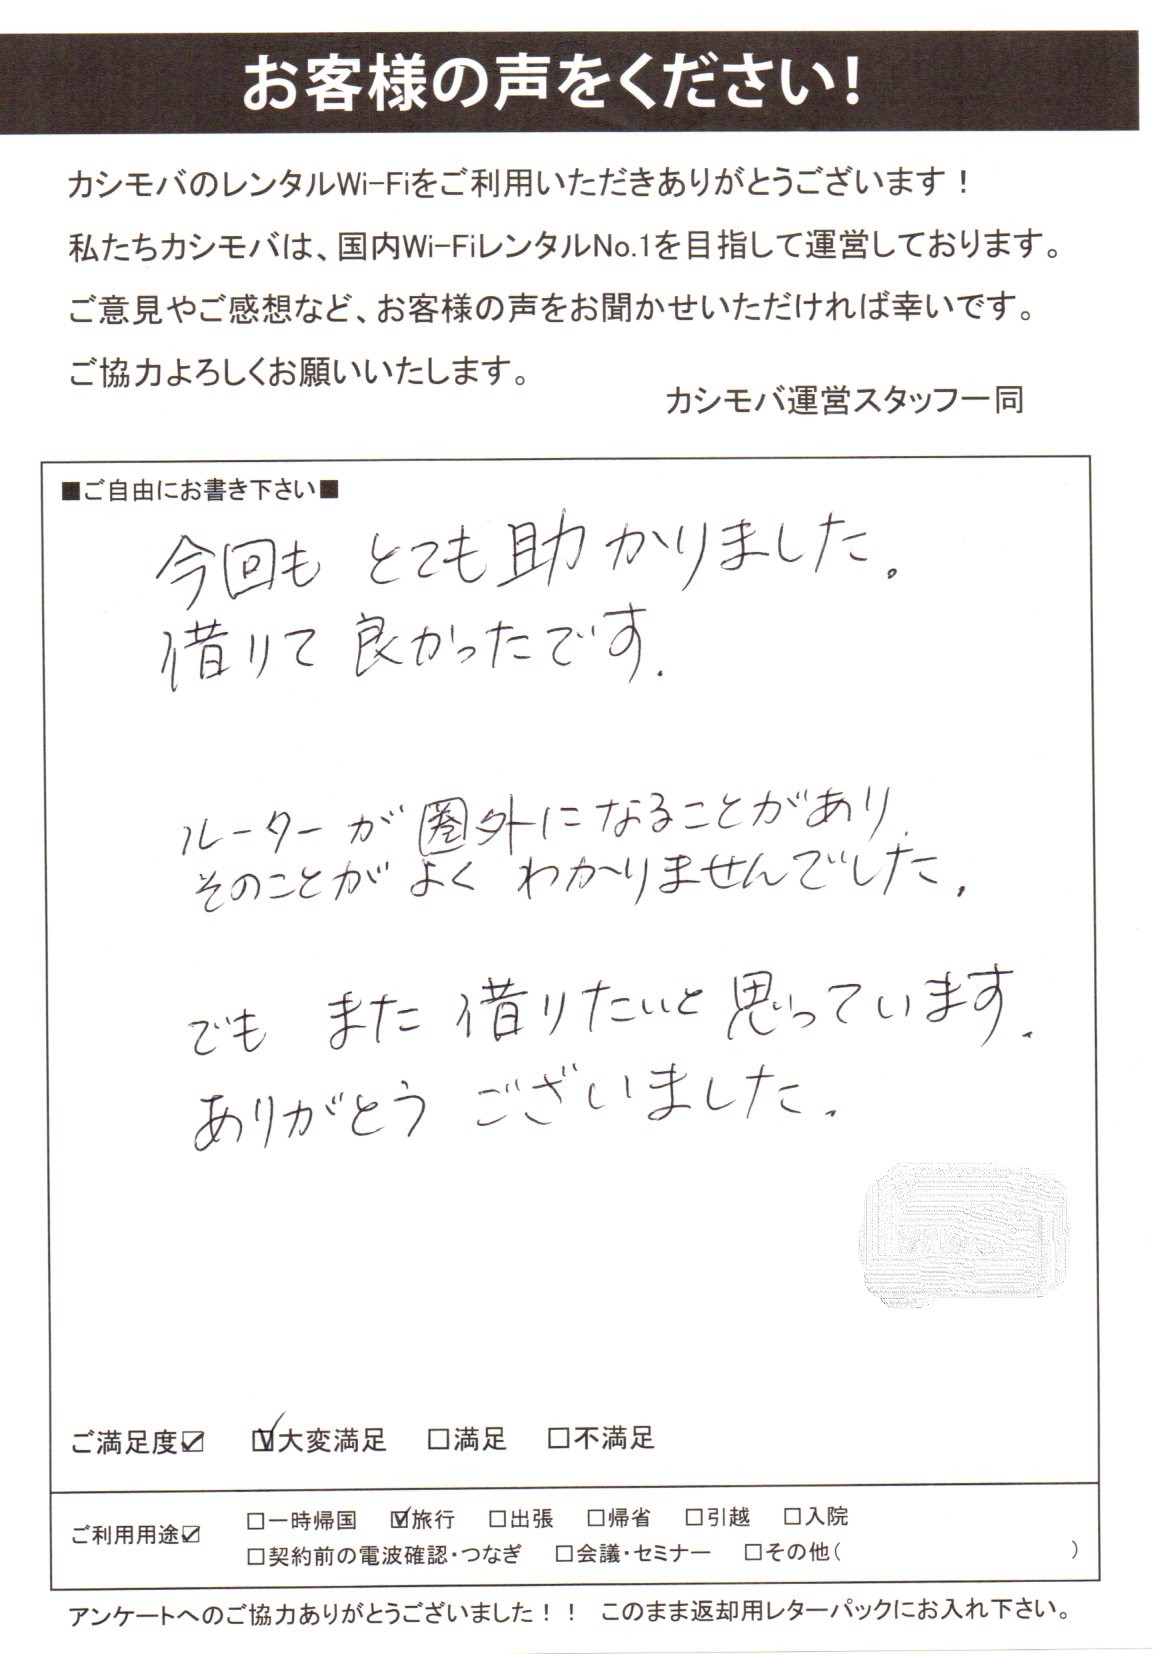 お客様の声をください!
カシモバのレンタルWi-Fiをご利用いただきありがとうございます！
私たちカシモバは、国内Wi-FiレンタルNo.1を目指して運営しております。
ご意見やご感想など、お客様の声をお聞かせいただければ幸いです。
ご協力よろしくお願いいたします。
カシモバ運営スタッフ一同
■ご自由にお書き下さい■
今回も とても助かりました。
借りて良かったです.
ルーターが圏外になることがあり,
そのことがよく わかりませんでした.
でも また借りたいと思っています.
ありがとう ございました.
ご満足度☑ ☑大変満足 □満足 □不満足
ご利用用途☑
□一時帰国 ☑旅行 □出張 □帰省 □引越 □入院
□契約前の電波確認・つなぎ □会議・セミナー □その他( )
アンケートへのご協力ありがとうございました！！ このまま返却用レターパックにお入れ下さい。